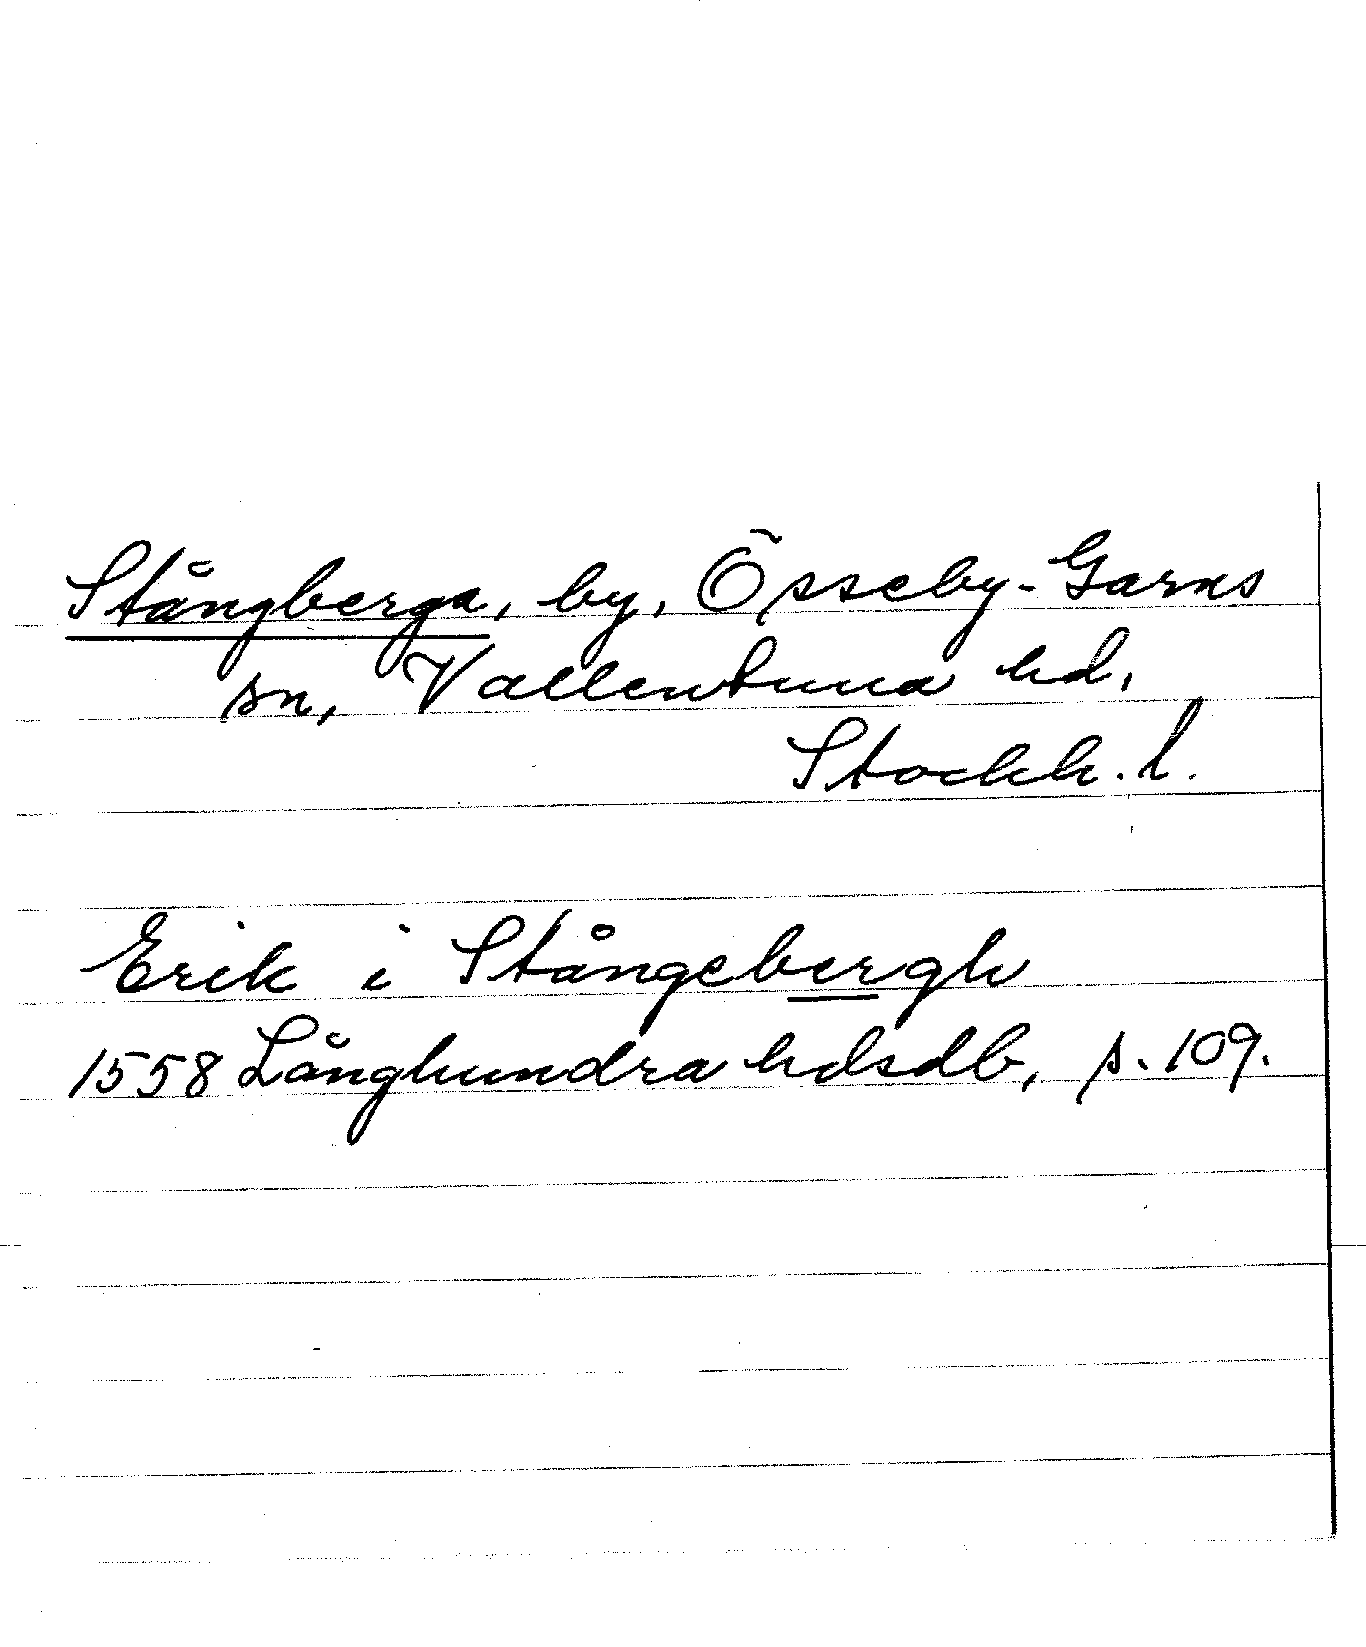 Stångberga, by, Össeby-Garns
sn, Vallentuna hd,
Stockh. l.
Erik i Stångebergh
1558 Långhundra hdsdb, s. 109.